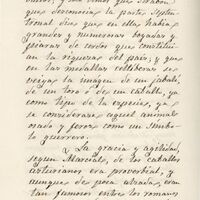 que denuncia la parte. Estra-
tronal dice que en ella habia
grandes y numerosas boyadas y
piaras de cerdos que constituí-
an la riqueza del pais, y que
en las medallas celtíberas se
veiya la imagen de un caballo,
de un toro ó de un caballo, ya
como tipo de la especie, ya
se considerase aquel animal
osado y feroz como un símbo-
lo guerrero.
La gracia y agilidad,
segun Marcial, de los caballos
asturianos era proverbial, y
aunque de poca alzada, eran
tan famosos entre los romanos